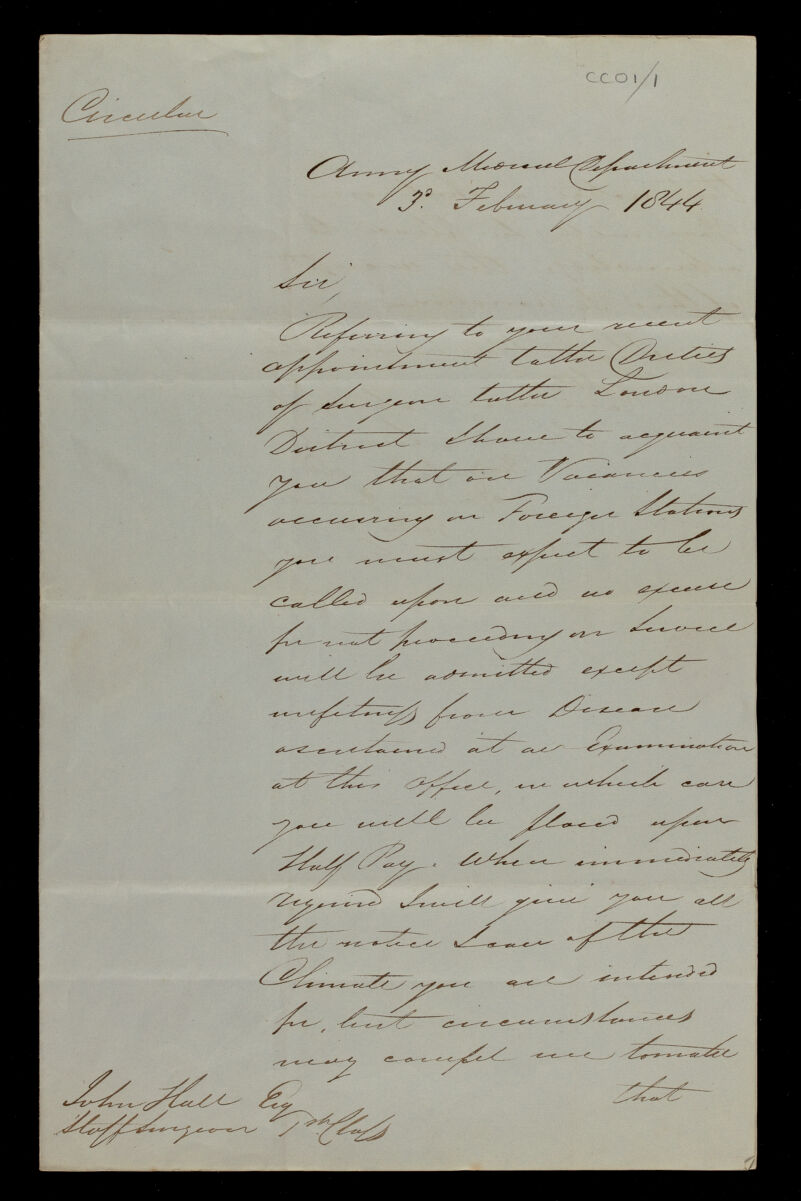 CC01/1
Circular
Army Medical Department
3d. February 1844.
Sir,
Referring to your recent
appointment to the Duties
of Surgeon to the London
District I have to acquaint
you that on Vacancies
occurring on Foreign Stations
you must expect to be
called upon and no excuse
for not proceeding on Service
will be admitted except
unfitness from Disease
ascertained at an Examination
at this office, in which case
you will be placed upon
Half Pay. When immediately
required I will give you all
the notice I can of the
Climate you are intended
for, but circumstances
may compel me to make
that
John Hall Esq
Staff Surgeon 1st Class